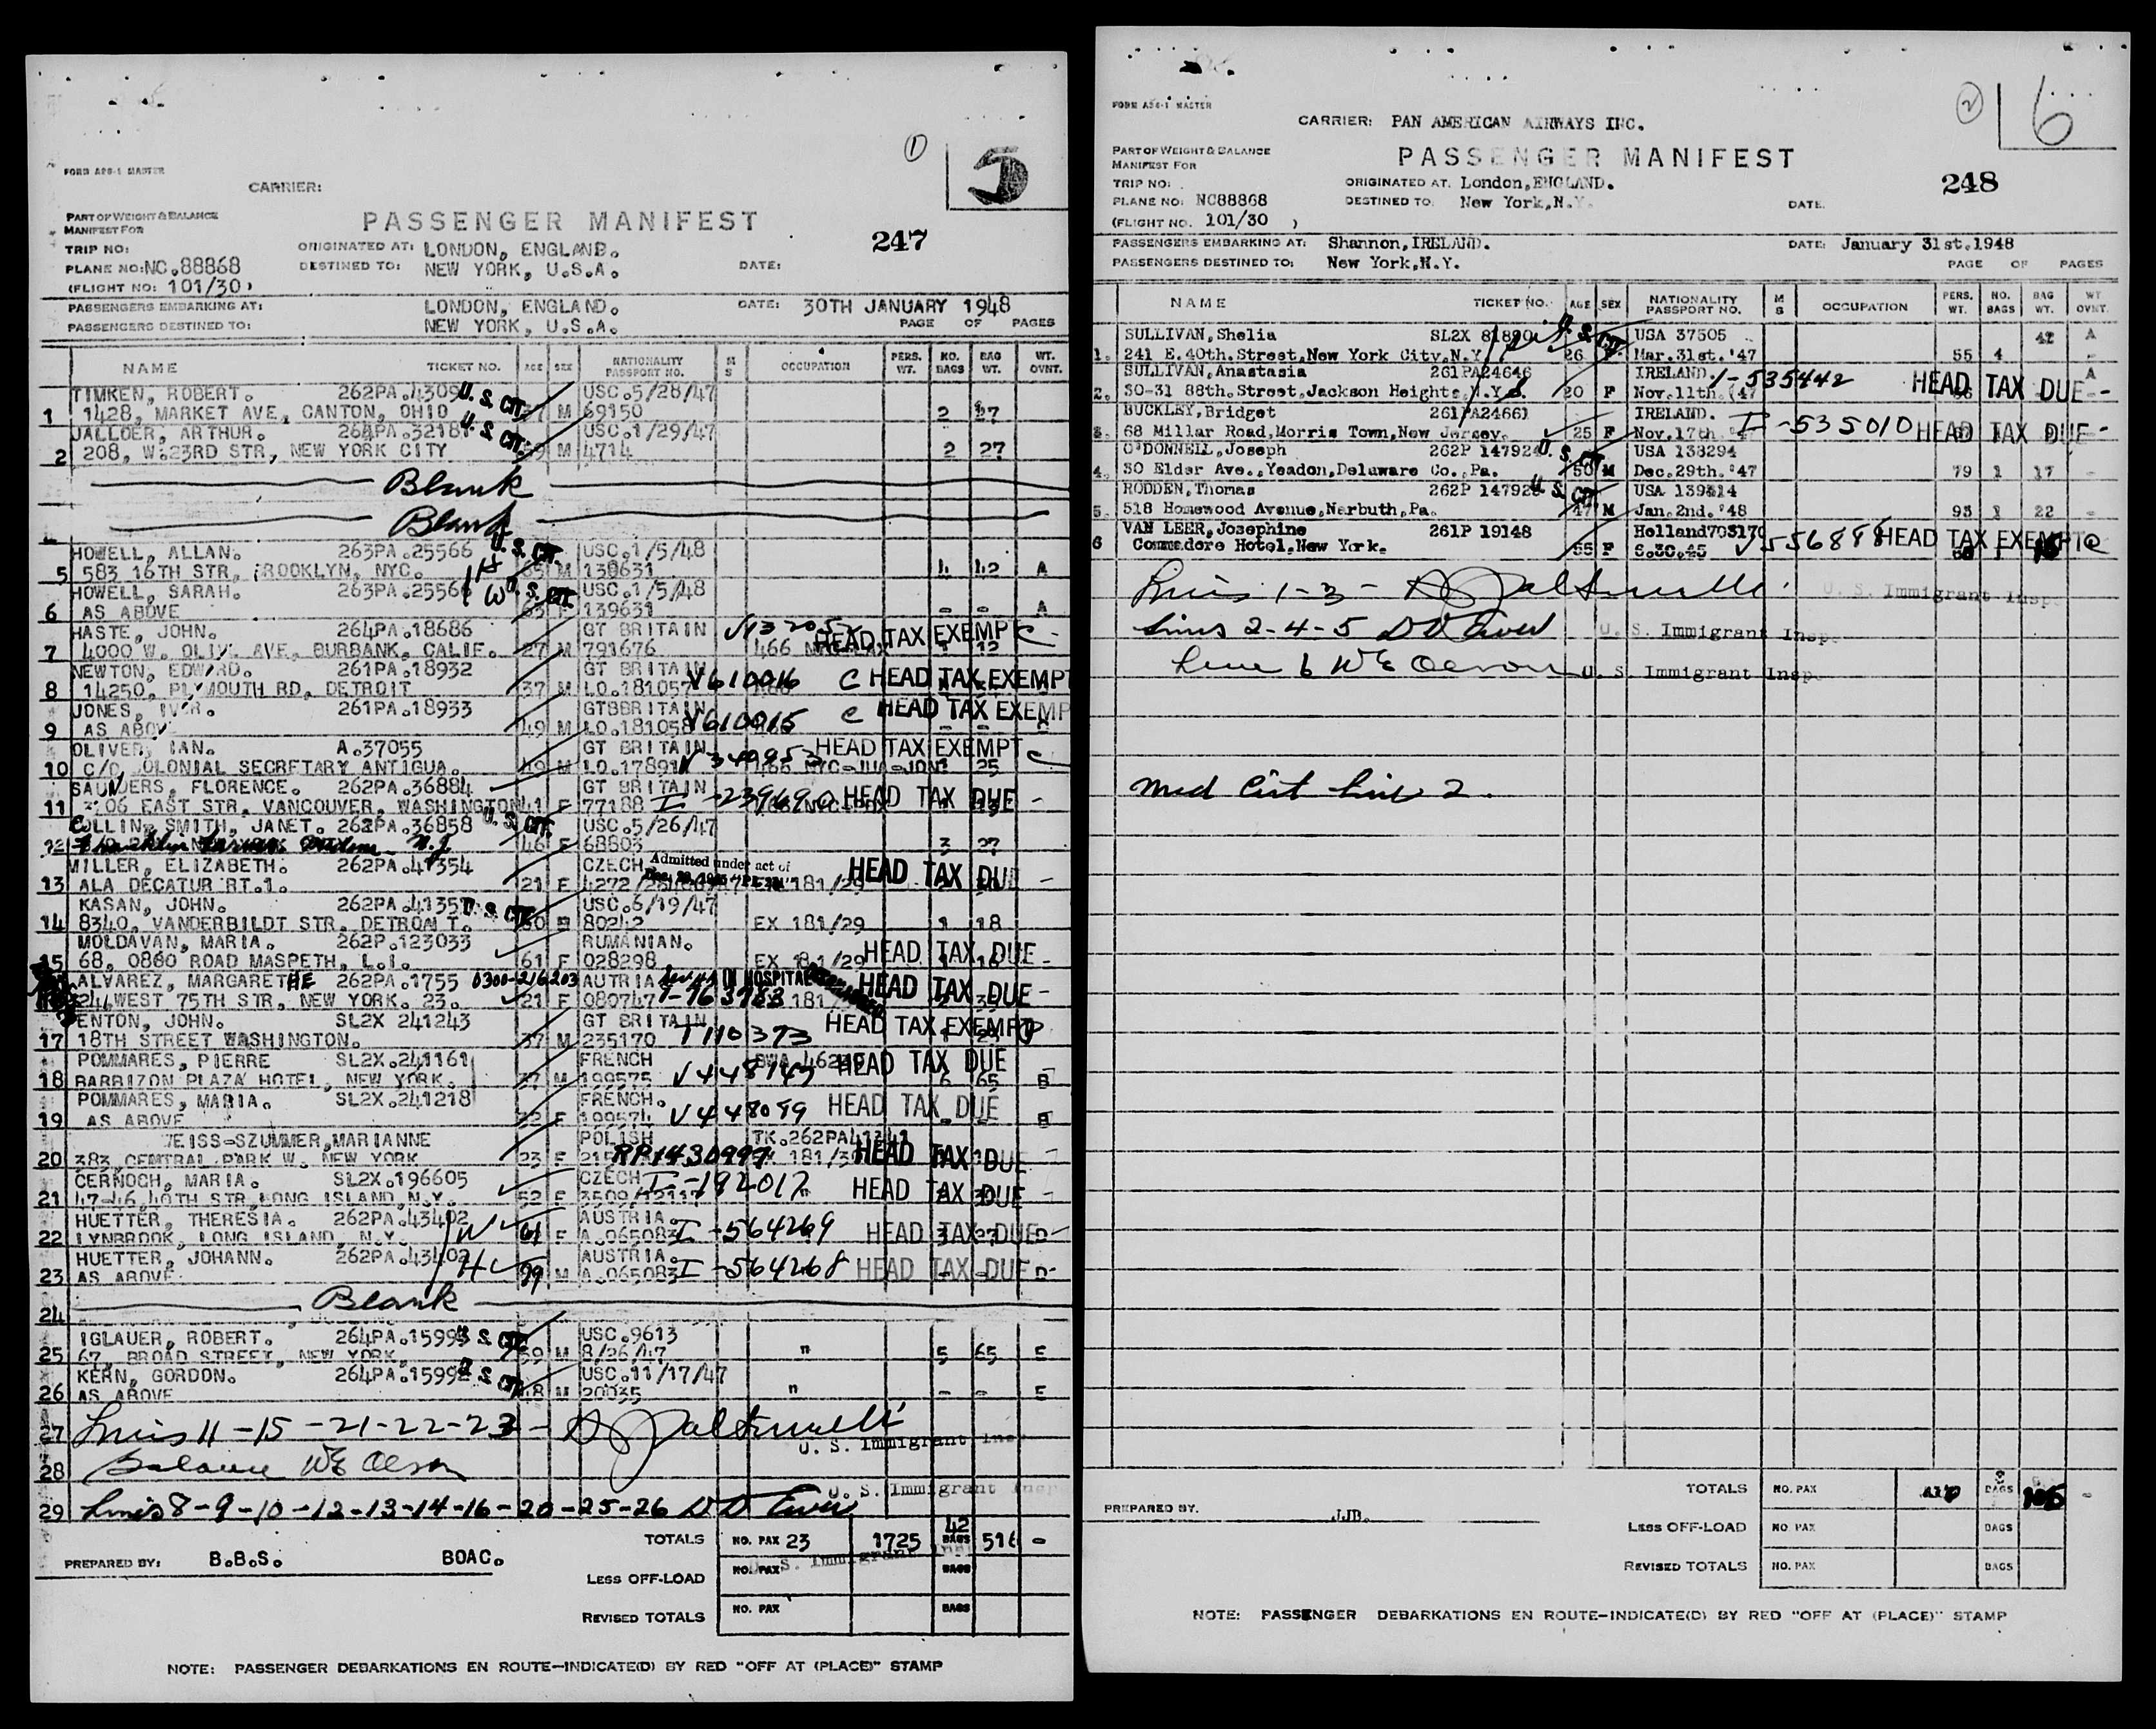 ①
5
FORM ADS-1 MASTER
CARRIER:
PART OF WEIGHT & BALANCE
MANIFEST FOR
PASSENGER MANIFEST
247
TRIP NO:
ORIGINATED AT: LONDON, ENGLAND.
PLANE NO: NC.88868
DESTINED TO: NEW YORK, U.S.A.
DATE:
(FLIGHT NO: 101/30)
PASSENGERS EMBARKING AT: LONDON, ENGLAND. DATE: 30TH JANUARY 1948
PASSENGERS DESTINED TO: NEW YORK, U.S.A. PAGE OF PAGES
NAME TICKET NO. AGE SEX NATIONALITY PASSPORT NO. M S OCCUPATION PERS. WT. NO. BAGS BAG WT. WT. OVNT.
TIMKEN, ROBERT. 262PA.4309 U.S. CIT. USC.5/28/47
1 1428, MARKET AVE, CANTON, OHIO 37 M 69150 2
JALLOER, ARTHUR. 264PA.3218 U.S. CIT. USC.1/29/47
2 208, W.23RD STR, NEW YORK CITY M 4714 2 27
Blank
Blank
HOWELL, ALLAN. 263PA.25566 U.S. CIT. USC.1/5/48
5 583 16TH STR, BROOKLYN, NYC. H M 139631 4 42 A
HOWELL, SARAH. 263PA.25566 W U.S. CIT. USC.1/5/48
6 AS ABOVE 63 F 139631 - - A
HASTE, JOHN. 264PA.18686 GT BRITAIN HEAD TAX EXEMPT C -
7 4000 W. OLIVE AVE, BURBANK, CALIF. 27 M 791676 12
NEWTON, EDWARD. 261PA.18932 GT BRITAIN V610016 C HEAD TAX EXEMPT
8 14250, PLYMOUTH RD, DETROIT 37 M LO.181057
JONES, IVOR. 261PA.18933 GTBBRITAIN V610015 C HEAD TAX EXEMP
9 AS ABOV 49 M LO.181058
OLIVER, IAN. A.37055 GT BRITAIN HEAD TAX EXEMPT C
10 C/O, OLONIAL SECRETARY ANTIGUA. 49 M LO.17891 25
SAUNDERS, FLORENCE. 262PA.36884 GT BRITAIN
11 3706 EAST STR, VANCOUVER, WASHINGTON 41 F 77188 I -239690 HEAD TAX DUE -
COLLIN, SMITH, JANET. 262PA.36858 U.S. CIT. USC.5/26/47
12 N.J. 46 F 68803 3 27
MILLER, ELIZABETH. 262PA.41354 CZECH Admitted under act of HEAD TAX DUE -
13 ALA DECATUR RT.1. 21 F 4272 181/29
KASAN, JOHN. 262PA.4135 U.S. CIT. USC.6/19/47
14 8340, VANDERBILDT STR, DETROIT. 80242 EX 181/29 1 18
MOLDAVAN, MARIA. 262P.123033 RUMANIAN.
15 68, 0860 ROAD MASPETH, L.I. 61 F 028298 EX 181/29 HEAD TAX DUE -
ALVAREZ, MARGARETHE 262PA.1755 0300-216203 AUTRIA IN HOSPITAL HEAD TAX DUE -
WEST 75TH STR, NEW YORK. 23. 21 F 080747 T-763983 181
ENTON, JOHN. SL2X 241243 GT BRITAIN HEAD TAX EXEMPT
17 18TH STREET WASHINGTON. 37 M 235170 T110373
POMMARES, PIERRE SL2X.241161 FRENCH HEAD TAX DUE
18 BARBIZON PLAZA HOTEL, NEW YORK. 37 M 199575 V448143 6 65 B
POMMARES, MARIA. SL2X.241218 FRENCH. HEAD TAX DUE
19 AS ABOVE F 199574 V448099 B
WEISS-SZUMMER, MARIANNE POLISH TK.262PA41341
20 383, CENTRAL PARK W. NEW YORK 23 F RP1430997 HEAD TAX DUE -
CERNOCH, MARIA. SL2X.196605 CZECH
21 47-46, 40TH STR, LONG ISLAND, N.Y. 52 F I -192017 " HEAD TAX DUE -
HUETTER, THERESIA. 262PA.43402 W AUSTRIA.
22 LYNBROOK, LONG ISLAND, N.Y. 61 F A.065083 I -564269 HEAD TAX DUE D
HUETTER, JOHANN. 262PA.43402 H AUSTRIA.
23 AS ABOVE M A.065083 I -564268 HEAD TAX DUE D
24 Blank
IGLAUER, ROBERT. 264PA.15993 U.S. CIT. USC.9613
25 67, BROAD STREET, NEW YORK, 59 M 8/26/47 " 5 65 E
KERN, GORDON. 264PA.15992 U.S. CIT. USC.11/17/47
26 AS ABOVE 48 M 20035 " - - E
27 Lines 11-15-21-22-23-
U. S. Immigrant Ins
28 Balance WE Olson
U. S. Immigrant Inspe
29 Lines 8-9-10-12-13-14-16-20-25-26
TOTALS NO. PAX 23 1725 42 BAGS 516 -
PREPARED BY: B.B.S. BOAC.
LESS OFF-LOAD NO. PAX S. Immigrant BAGS
REVISED TOTALS NO. PAX BAGS
NOTE: PASSENGER DEBARKATIONS EN ROUTE-INDICATE(D) BY RED "OFF AT (PLACE)" STAMP
② 6
FORM ADS-1 MASTER
CARRIER: PAN AMERICAN AIRWAYS INC.
PART OF WEIGHT & BALANCE
MANIFEST FOR
PASSENGER MANIFEST
248
TRIP NO:
ORIGINATED AT. London, ENGLAND.
PLANE NO: NC88868
DESTINED TO: New York, N.Y.
DATE.
(FLIGHT NO. 101/30 )
PASSENGERS EMBARKING AT: Shannon, IRELAND. DATE: January 31st.1948
PASSENGERS DESTINED TO: New York, N.Y. PAGE OF PAGES
NAME TICKET NO. AGE SEX NATIONALITY PASSPORT NO. M S OCCUPATION PERS. WT. NO. BAGS BAG WT. WT OVNT.
SULLIVAN, Shelia SL2X 81890 U.S. CIT. USA 37505 42 A
1. 241 E.40th.Street, New York City, N.Y. 26 F Mar.31st.'47 55 4 -
SULLIVAN, Anastasia 261PA24646 IRELAND. I-535442 A
2. 30-31 88th.Street, Jackson Heights, N.Y. 20 F Nov.11th.'47 HEAD TAX DUE -
BUCKLEY, Bridget 261PA24661 IRELAND. I -535010
3. 68 Millar Road, Morris Town, New Jersey. 25 F Nov.17th.'47 HEAD TAX DUE -
O'DONNELL, Joseph 262P 147924 U.S. CIT. USA 138294
4. 30 Elder Ave., Yeadon, Delaware Co., Pa. 50 M Dec.29th.'47 79 1 17 -
RODDEN, Thomas 262P 147925 U.S. CIT. USA 139814
5. 518 Homewood Avenue, Narbuth, Pa. 47 M Jan.2nd.'48 93 1 22 -
VAN LEER, Josephine 261P 19148 Holland703170
6 Commadore Hotel, New York. 55 F 8.30.45 HEAD TAX EXEMPT C
Lines 1-3-
U. S. Immigrant Inspe
Lines 2-4-5
U. S. Immigrant Inspe
Line 6 WE Olson U. S. Immigrant Inspe
Med Cert Line 2.
TOTALS NO. PAX BAGS -
PREPARED BY. JJB.
LESS OFF-LOAD NO. PAX BAGS
REVISED TOTALS NO. PAX BAGS
NOTE: PASSENGER DEBARKATIONS EN ROUTE-INDICATE(D) BY RED "OFF AT (PLACE)" STAMP